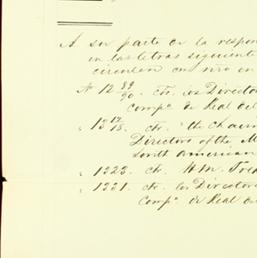 A su parte de la respon
en las letras siguient
circulen con giro en
Nº 12 89/90. ch. los Director
Compª de Real del
" 13 12/13. ch. the Chairm
Directors of the M
South American
" 1323. ch. W.M.
" 1331. ch. los Directore
Compª de Real de